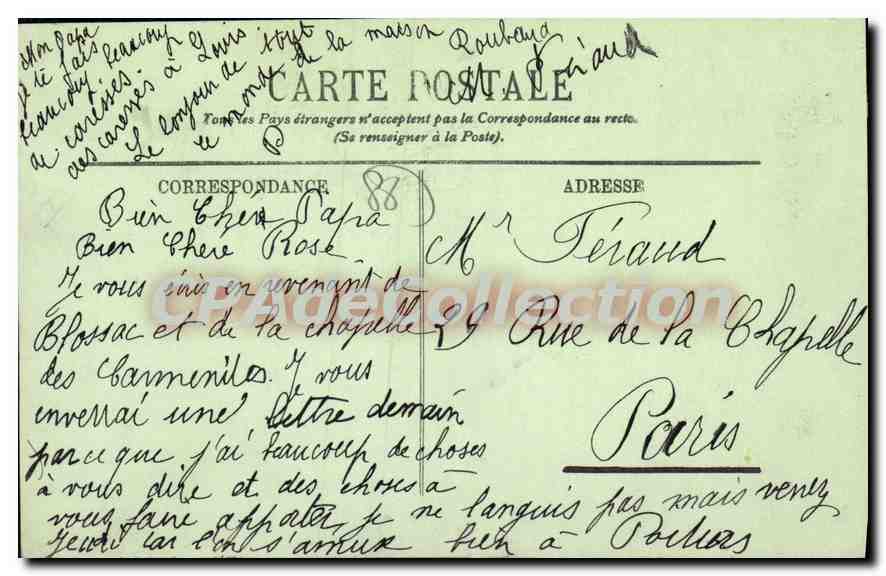 Mon Papa
je te fais
beaucoup, beaucoup
de caresses.
des caresses à Louis
Le bonjour de tout
le monde de la maison Roubaud
M. Féraud
CARTE POSTALE
Tous les Pays étrangers n'acceptent pas la Correspondance au recto.
(Se renseigner à la Poste).
CORRESPONDANCE
88
ADRESSE
Bien Cher Papa
Bien Chère Rose
Je vous écris en revenant de
Blossac et de la chapelle
des Carmenites. Je vous
enverrai une lettre demain
parce que j'ai beaucoup de choses
à vous dire et des choses à
vous faire apporter, je ne languis pas mais venez
jeudi car l'on s'amuse bien à Poitiers
Mr Féraud
29 Rue de la Chapelle
Paris
CPAdeCollection.com